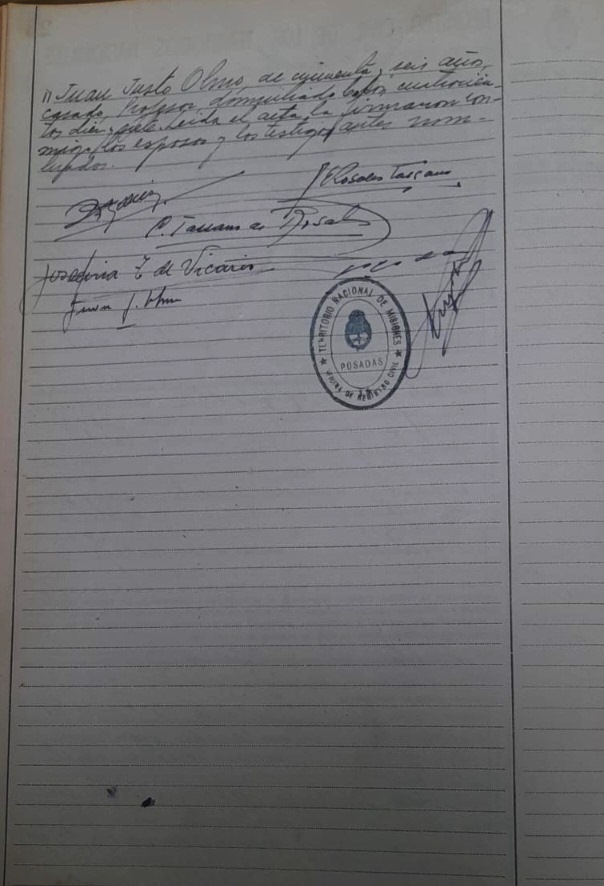 "Juan Justo Olmo, de cincuenta y seis años,
casado, Profesor, domiciliado Colón cuatrocien-
tos diez y siete. Leída el acta, la firmaron con-
migo, los esposos y los testigos antes nom-
brados.
Rosales Tassano
C. Tassano de Rosales
Josefina T. de Vicario
Juan J. Olmo
TERRITORIO NACIONAL DE MISIONES
POSADAS
OFICINA DE REGISTRO CIVIL